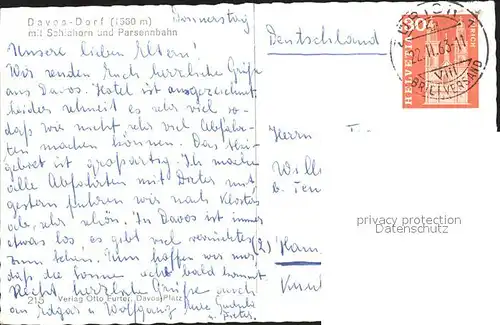 Davos-Dorf (1560 m)
mit Schiahorn und Parsennbahn
Donnerstag
Unsere lieben Eltern!
Wir senden Euch herrliche Grüße
aus Davos. Hotel ist ausgezeichnet
leider schneit es sehr viel so-
daß wir nicht sehr viel Abfahr-
ten machen können. Das Ski-
gebiet ist großartig. Ich mache
alle Abfahrten mit Dieter mit,
gestern fuhren wir nach Kloster
ab, sehr schön. In Davos ist immer
etwas los, es gibt viel verrücktes
zum sehen. Nun hoffen wir nur,
daß die Sonne bald kommt
Recht herzliche Grüße auch
an Edgar u Wolfgang Eure
u Dieter
215 Verlag Otto Furter, Davos-Platz
Deutschland
Herrn
HELVETIA
ZÜRICH
22.11.63-11
VIII
BRIEFVERSAND
privacy protection
Datenschutz